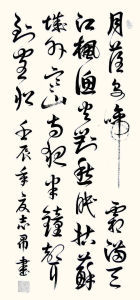 月落烏啼霜滿天
江楓漁火對愁眠姑蘇
城外寒山寺夜半鐘聲
到客船壬辰年夏志書